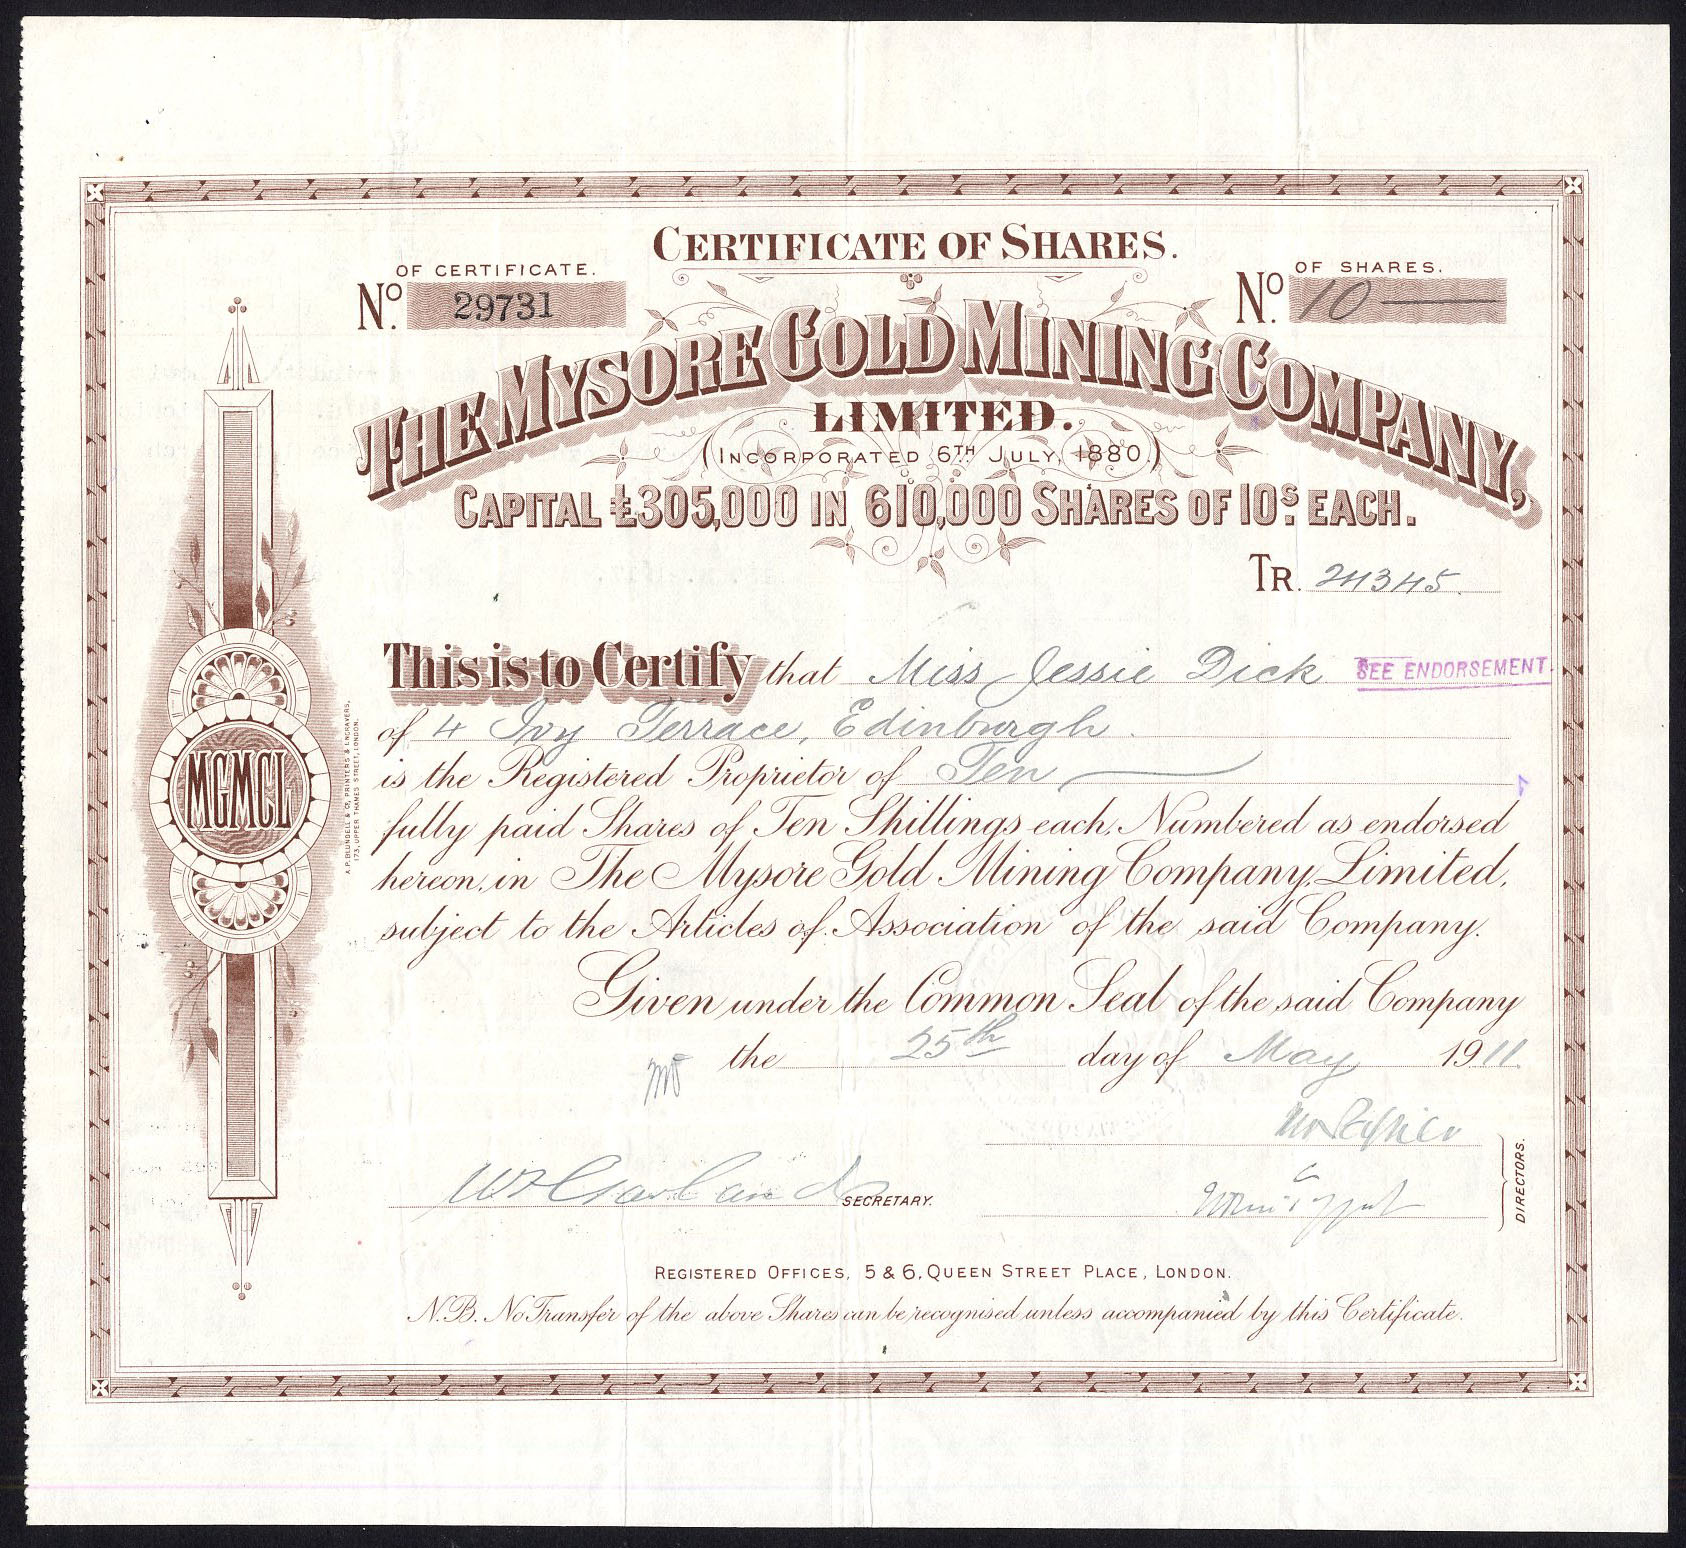 CERTIFICATE OF SHARES.
OF CERTIFICATE.
No. 29731
OF SHARES.
No. 10
THE MYSORE GOLD MINING COMPANY,
LIMITED.
(INCORPORATED 6TH JULY, 1880.)
CAPITAL £305,000 IN 610,000 SHARES OF 10s. EACH.
TR. 24345.
This is to Certify that Miss Jessie Dick SEE ENDORSEMENT.
of 4 Ivy Terrace, Edinburgh.
is the Registered Proprietor of Ten
fully paid Shares of Ten Shillings each, Numbered as endorsed
hereon, in The Mysore Gold Mining Company, Limited,
subject to the Articles of Association of the said Company.
Given under the Common Seal of the said Company
the 25th day of May 1911.
SECRETARY.
DIRECTORS.
REGISTERED OFFICES, 5 & 6, QUEEN STREET PLACE, LONDON.
N.B. No Transfer of the above Shares can be recognised unless accompanied by this Certificate.
MGMCL
A.P. BLUNDELL & Co, PRINTERS & ENGRAVERS,
173, UPPER THAMES STREET, LONDON.